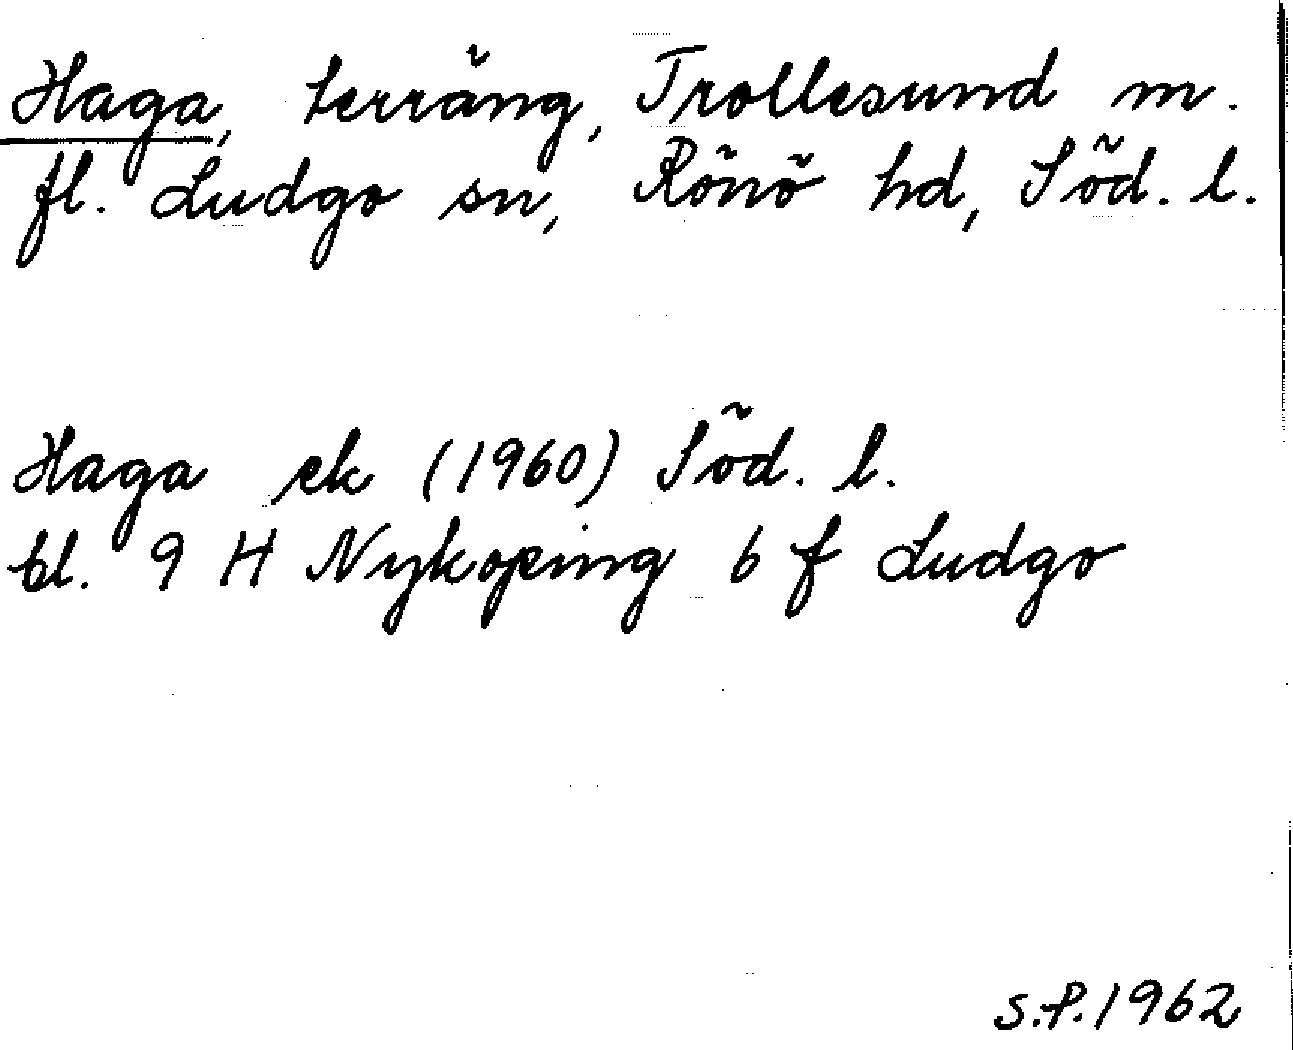 Haga, terräng, Trollesund m.
fl. Ludgo sn, Rönö hd, Söd. l.
Haga ek (1960) Söd. l.
bl. 9 H Nyköping 6 f Ludgo
S.P. 1962